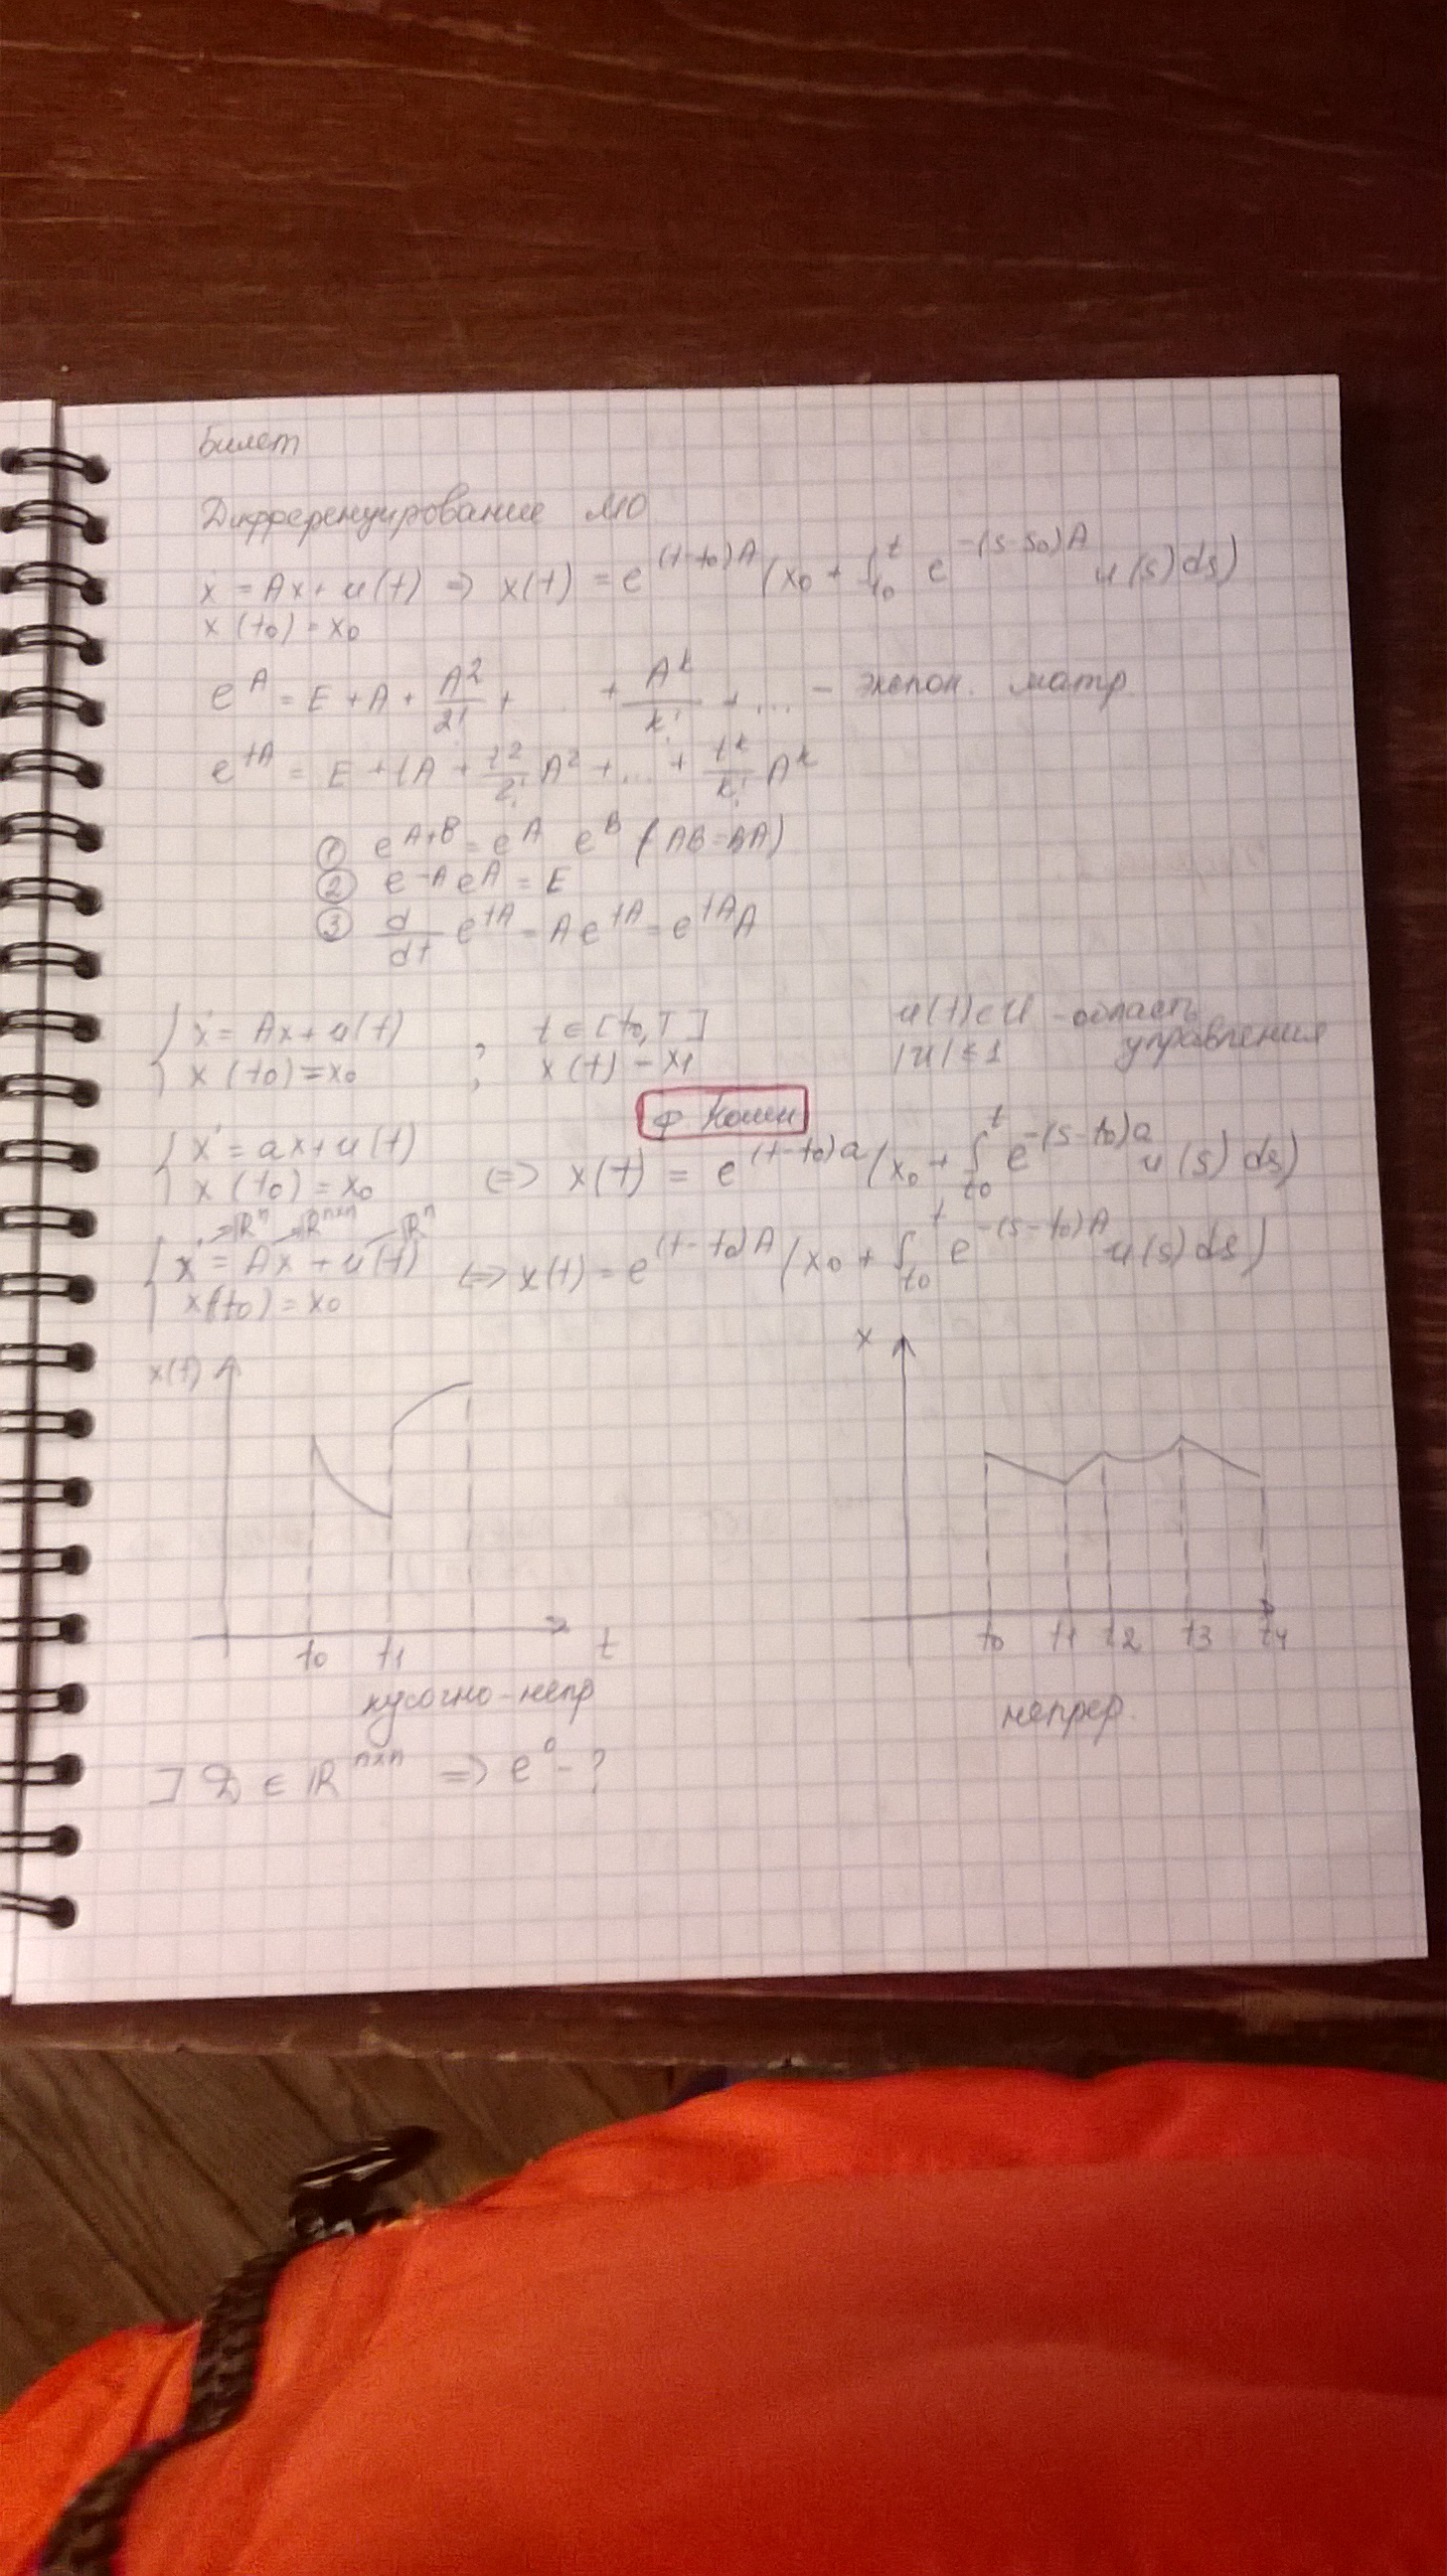 Билет
Дифференцирование МО
ẋ = Ax + u(t) ⇒ x(t) = e^{(t-t₀)A}(x₀ + ∫_{t₀}^{t} e^{-(s-s₀)A} u(s)ds)
x(t₀) = x₀
e^A = E + A + A²/2! + ... + A^k/k! + ... - экспон. матр.
e^{tA} = E + tA + t²/2! A² + ... + t^k/k! A^k
① e^{A+B} = e^A e^B (AB=BA)
② e^{-A} e^A = E
③ d/dt e^{tA} = Ae^{tA} = e^{tA}A
{ ẋ = Ax + u(t) ; t ∈ [t₀,T] u(t)∈U - область
{ x(t₀) = x₀ ; x(t) - x₁ |u| ≤ 1 управления
ф Коши
{ ẋ = ax + u(t)
{ x(t₀) = x₀ ⇔ x(t) = e^{(t-t₀)a}(x₀ + ∫_{t₀}^{t} e^{-(s-t₀)a} u(s) ds)
→ℝⁿ →ℝ^{n×n} ℝⁿ
{ ẋ = Ax + u(t) ⇔ x(t) = e^{(t-t₀)A}(x₀ + ∫_{t₀}^{t} e^{-(s-t₀)A} u(s) ds)
{ x(t₀) = x₀
x(t)
t₀ t₁ t
кусочно-непр
x
t₀ t₁ t₂ t₃ t₄
непрер.
] D ∈ ℝ^{n×n} ⇒ e^0 - ?